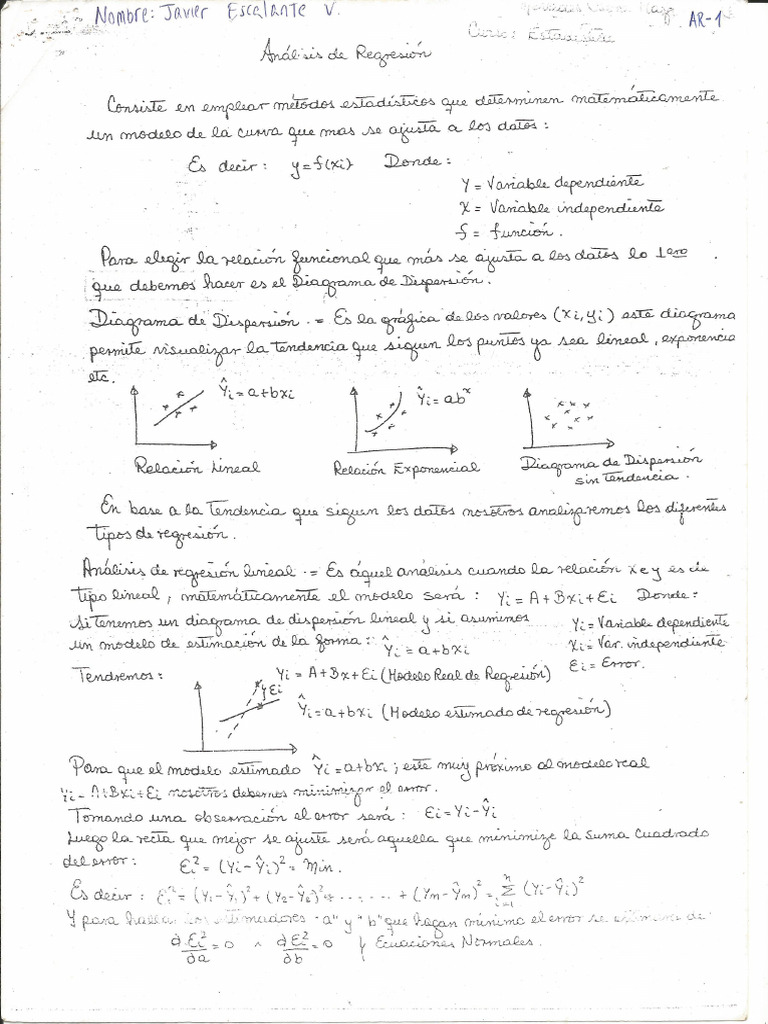 Nombre: Javier Escalante V.
AR-1
Curso: Estadística
Análisis de Regresión
Consiste en emplear métodos estadísticos que determinen matemáticamente
un modelo de la curva que mas se ajusta a los datos:
Es decir: y=f(xi) Donde:
Y = Variable dependiente
X = Variable independiente
f = función.
Para elegir la relación funcional que más se ajusta a los datos lo 1ero
que debemos hacer es el Diagrama de Dispersión.
Diagrama de Dispersión .= Es la gráfica de los valores (xi, yi) este diagrama
permite visualizar la tendencia que siguen los puntos ya sea lineal, exponencia
etc.
Ŷi = a+bxi
Ŷi = abˣ
Relación Lineal
Relación Exponencial
Diagrama de Dispersión
sin tendencia.
En base a la tendencia que siguen los datos nosotros analizaremos los diferentes
tipos de regresión.
Análisis de regresión lineal .= Es áquel análisis cuando la relación x e y es de
tipo lineal, matemáticamente el modelo será: Yi = A+Bxi+Ei Donde:
Si tenemos un diagrama de dispersión lineal y si asumimos
Yi = Variable dependiente
un modelo de estimación de la forma: Ŷi = a+bxi
xi = Var. independiente
Ei = Error.
Tendremos:
Yi = A+Bx+Ei (Modelo Real de Regresión)
Ei
Ŷi = a+bxi (Modelo estimado de regresión)
Para que el modelo estimado Ŷi = a+bxi; este muy próximo al modelo real
Yi = A+Bxi+Ei nosotros debemos minimizar el error.
Tomando una observación el error será: Ei = Yi - Ŷi
Luego la recta que mejor se ajuste será aquella que minimize la suma cuadrado
del error: Ei² = (Yi - Ŷi)² = Min.
Es decir: Ei² = (Y1 - Ŷ1)² + (Y2 - Ŷ2)² + ...... + (Yn - Ŷn)² = Σⁿᵢ₌₁ (Yi - Ŷi)²
Y para hallar los estimadores "a" y "b" que hagan mínimo el error se
∂Ei²/∂a = 0 ∧ ∂Ei²/∂b = 0 } Ecuaciones Normales.